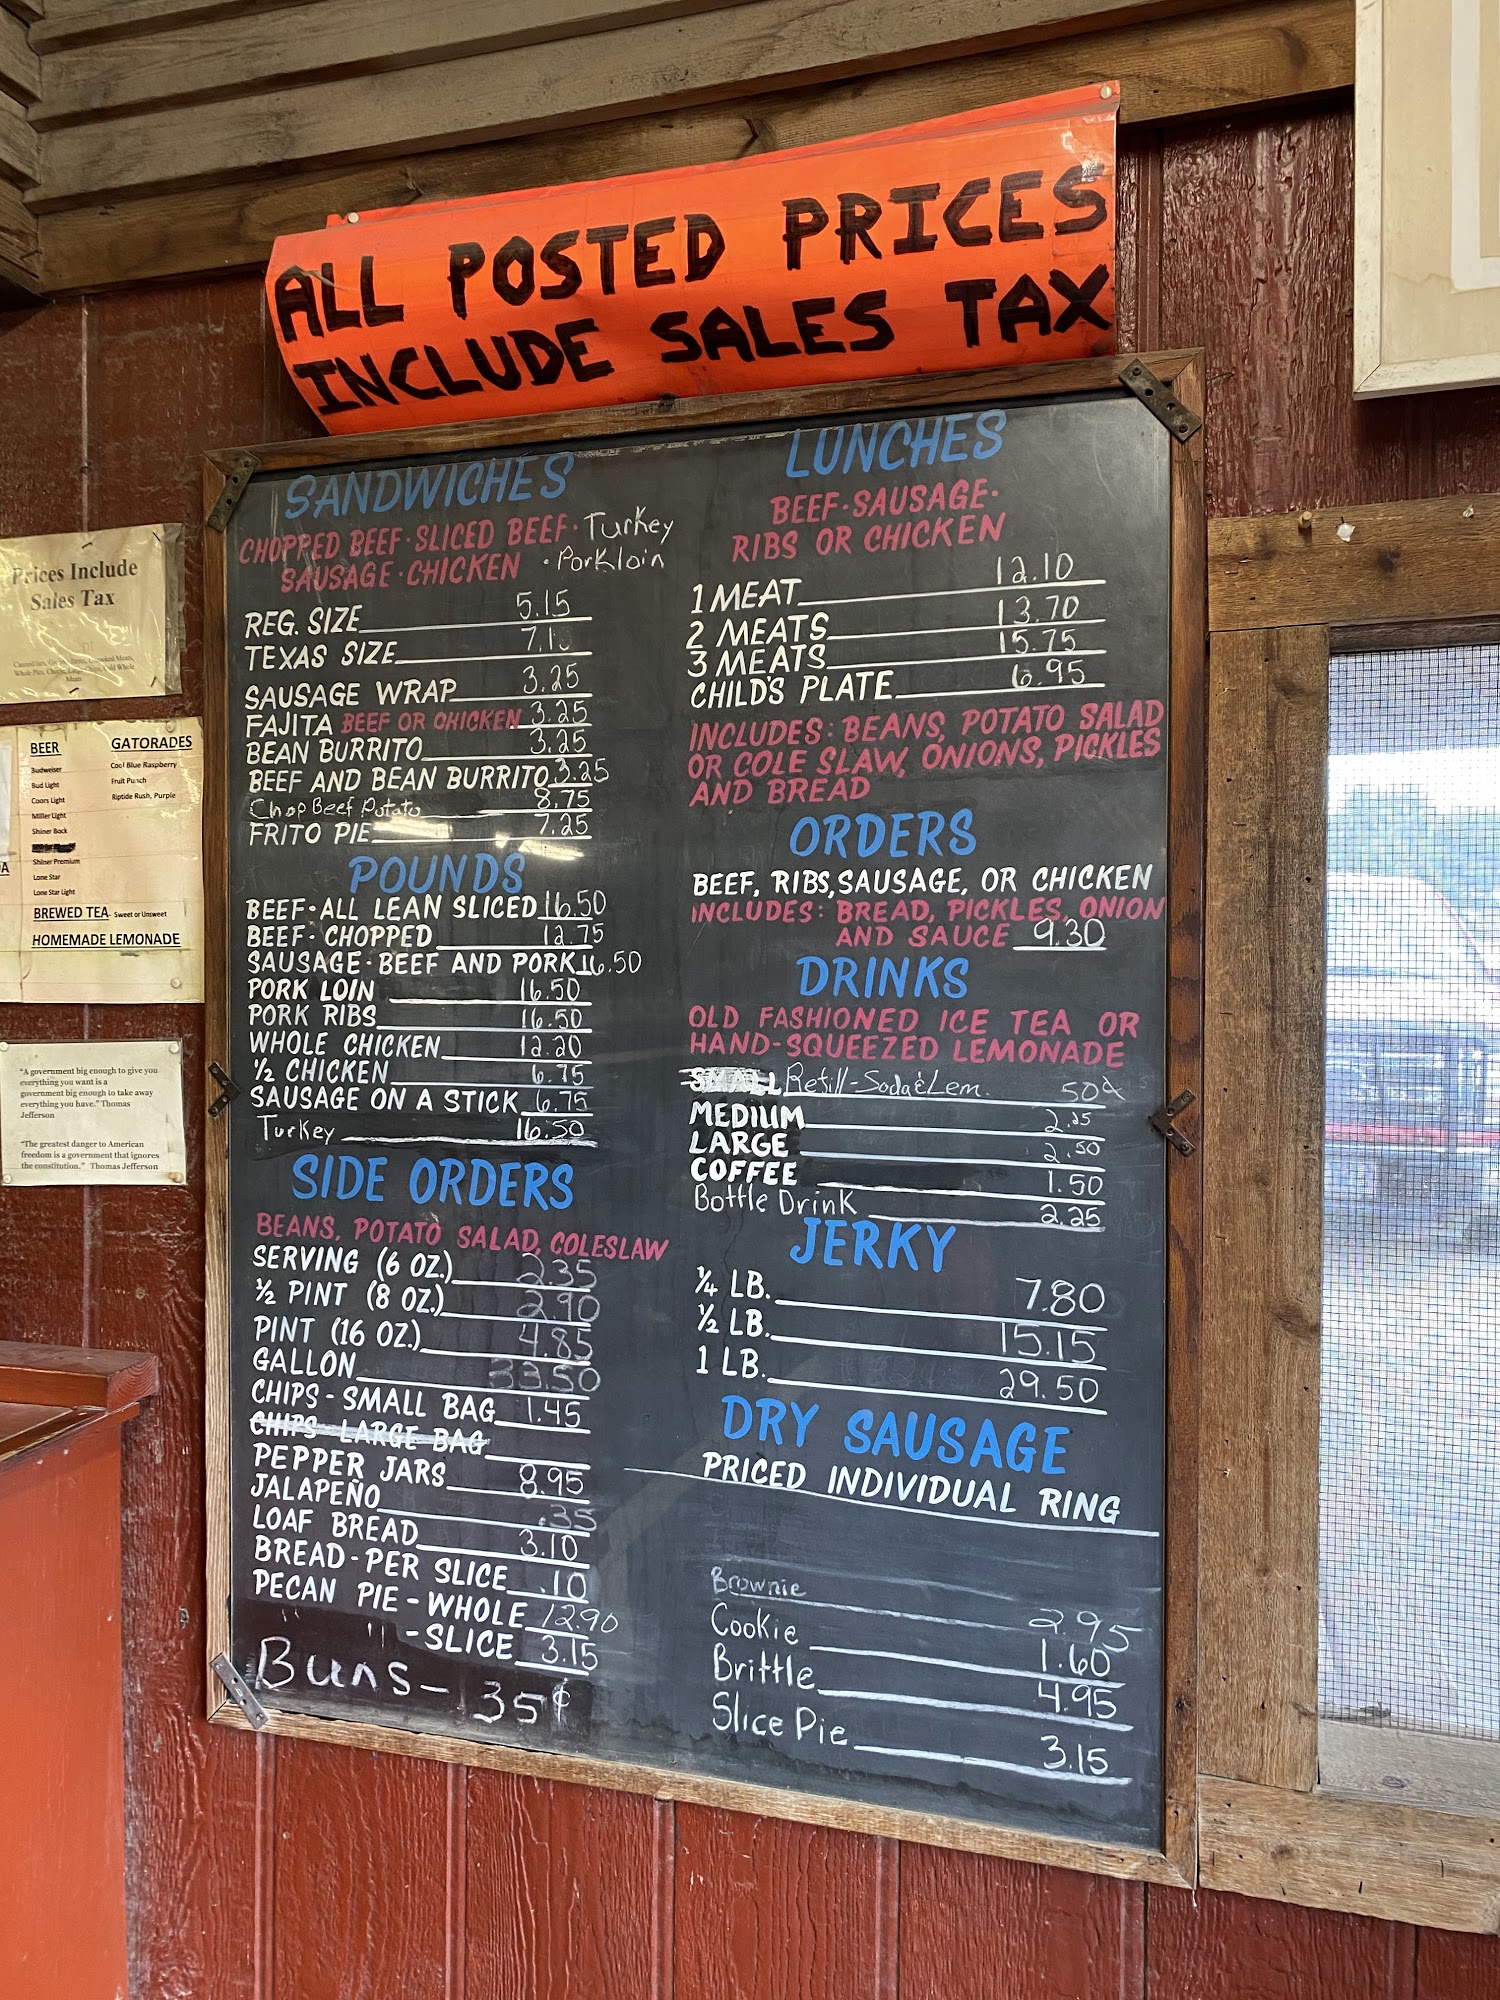 ALL POSTED PRICES
INCLUDE SALES TAX
SANDWICHES
CHOPPED BEEF·SLICED BEEF· Turkey
SAUSAGE·CHICKEN ·Porkloin
REG. SIZE 5.15
TEXAS SIZE 7.1
SAUSAGE WRAP 3.25
FAJITA BEEF OR CHICKEN 3.25
BEAN BURRITO 3.25
BEEF AND BEAN BURRITO 3.25
Chop Beef Potato 8.75
FRITO PIE 7.25
POUNDS
BEEF·ALL LEAN SLICED 16.50
BEEF·CHOPPED 12.75
SAUSAGE·BEEF AND PORK 16.50
PORK LOIN 16.50
PORK RIBS 16.50
WHOLE CHICKEN 12.20
½ CHICKEN 6.75
SAUSAGE ON A STICK 6.75
Turkey 16.50
SIDE ORDERS
BEANS, POTATO SALAD, COLESLAW
SERVING (6 OZ.) 2.35
½ PINT (8 OZ.) 2.90
PINT (16 OZ.) 4.85
GALLON 33.50
CHIPS-SMALL BAG 1.45
CHIPS-LARGE BAG
PEPPER JARS 8.95
JALAPEÑO .35
LOAF BREAD 3.10
BREAD-PER SLICE .10
PECAN PIE-WHOLE 12.90
" " -SLICE 3.15
Buns- 35¢
LUNCHES
BEEF·SAUSAGE·
RIBS OR CHICKEN
1 MEAT 12.10
2 MEATS 13.70
3 MEATS 15.75
CHILD'S PLATE 6.95
INCLUDES: BEANS, POTATO SALAD
OR COLE SLAW, ONIONS, PICKLES
AND BREAD
ORDERS
BEEF, RIBS, SAUSAGE, OR CHICKEN
INCLUDES: BREAD, PICKLES, ONION
AND SAUCE 9.30
DRINKS
OLD FASHIONED ICE TEA OR
HAND-SQUEEZED LEMONADE
SMALL Refill-Soda & Lem. 50¢
MEDIUM 2.25
LARGE 2.50
COFFEE 1.50
Bottle Drink 2.25
JERKY
¼ LB. 7.80
½ LB. 15.15
1 LB. 29.50
DRY SAUSAGE
PRICED INDIVIDUAL RING
Brownie 2.95
Cookie 1.60
Brittle 4.95
Slice Pie 3.15
Prices Include
Sales Tax
BEER
Budweiser
Bud Light
Coors Light
Miller Light
Shiner Bock
Shiner Premium
Lone Star
Lone Star Light
GATORADES
Cool Blue Raspberry
Fruit Punch
Riptide Rush, Purple
BREWED TEA- Sweet or Unsweet
HOMEMADE LEMONADE
"A government big enough to give you
everything you want is a
government big enough to take away
everything you have." Thomas
Jefferson
"The greatest danger to American
freedom is a government that ignores
the constitution." Thomas Jefferson